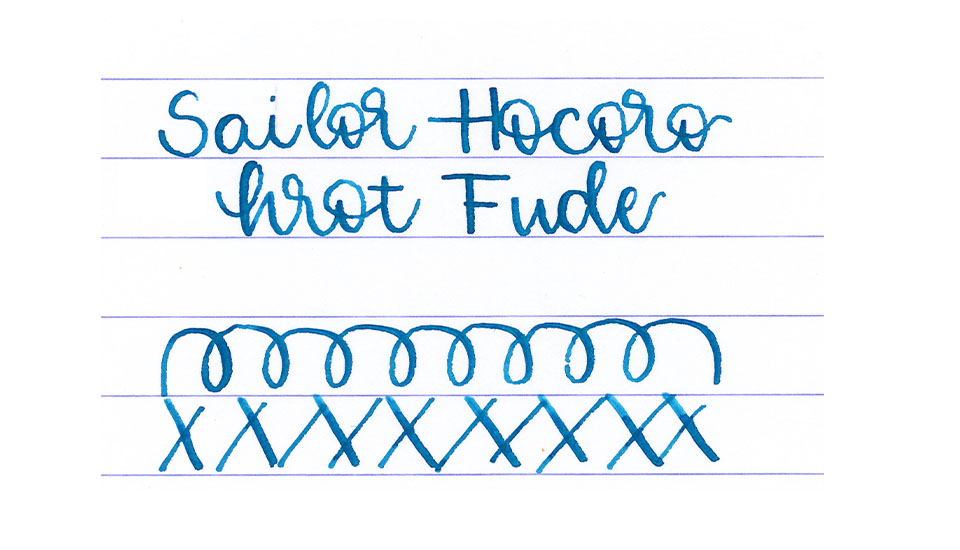 Sailor Hocoro
hrot Fude